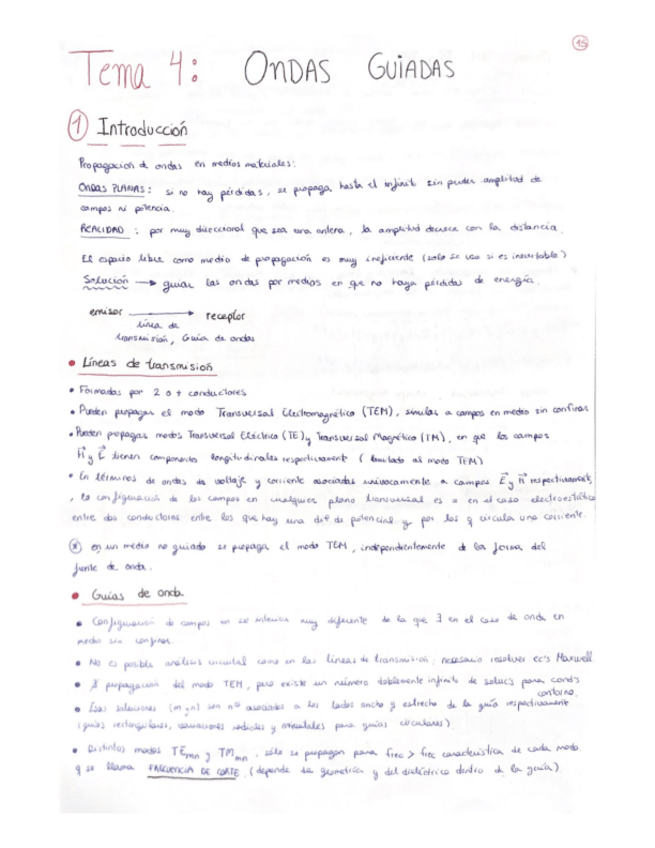 15
Tema 4: ONDAS GUIADAS
1 Introducción
Propagación de ondas en medios materiales:
ONDAS PLANAS: si no hay pérdidas, se propaga hasta el infinito sin perder amplitud de
campos ni potencia.
REALIDAD: por muy direccional que sea una antena, la amplitud decrece con la distancia.
El espacio libre como medio de propagación es muy ineficiente (solo se usa si es inevitable)
Solución → guiar las ondas por medios en que no haya pérdidas de energía.
emisor → receptor
línea de
transmisión, Guía de ondas
• Líneas de transmisión
• Formadas por 2 o + conductores
• Pueden propagar el modo Transversal Electromagnético (TEM), similar a campos en medio sin confinar
• Pueden propagar modos Transversal Eléctrico (TE) y Transversal Magnético (TM), en que los campos
H⃗ y E⃗ tienen componentes longitudinales respectivament (limitado al modo TEM)
• En términos de ondas de voltaje y corriente asociadas unívocamente a campos E⃗ y H⃗ respectivament,
, la configuración de los campos en cualquier plano transversal es = en el caso electroestático
entre dos conductores entre los que hay una dif de potencial y por los q circula una corriente.
* en un medio no guiado se propaga el modo TEM, independientemente de la forma del
frente de onda.
• Guías de onda
• Configuración de campos en su interior muy diferente de la que ∃ en el caso de onda en
medio sin confinar.
• No es posible análisis circuital como en las líneas de transmisión, necesario resolver ec's Maxwell.
• ∄ propagación del modo TEM, pero existe un número doblemente infinito de soluc's para cond's
contorno.
• Esas soluciones (m y n) son nos asociados a los lados ancho y estrecho de la guía respectivamente
(guías rectangulares, variaciones radiales y para guías circulares)
• Distintos modos TEmn y TMmn, sólo se propagan para frec > frec característica de cada modo
q se llama FRECUENCIA DE CORTE. (depende de geometría y del dieléctrico dentro de la guía).